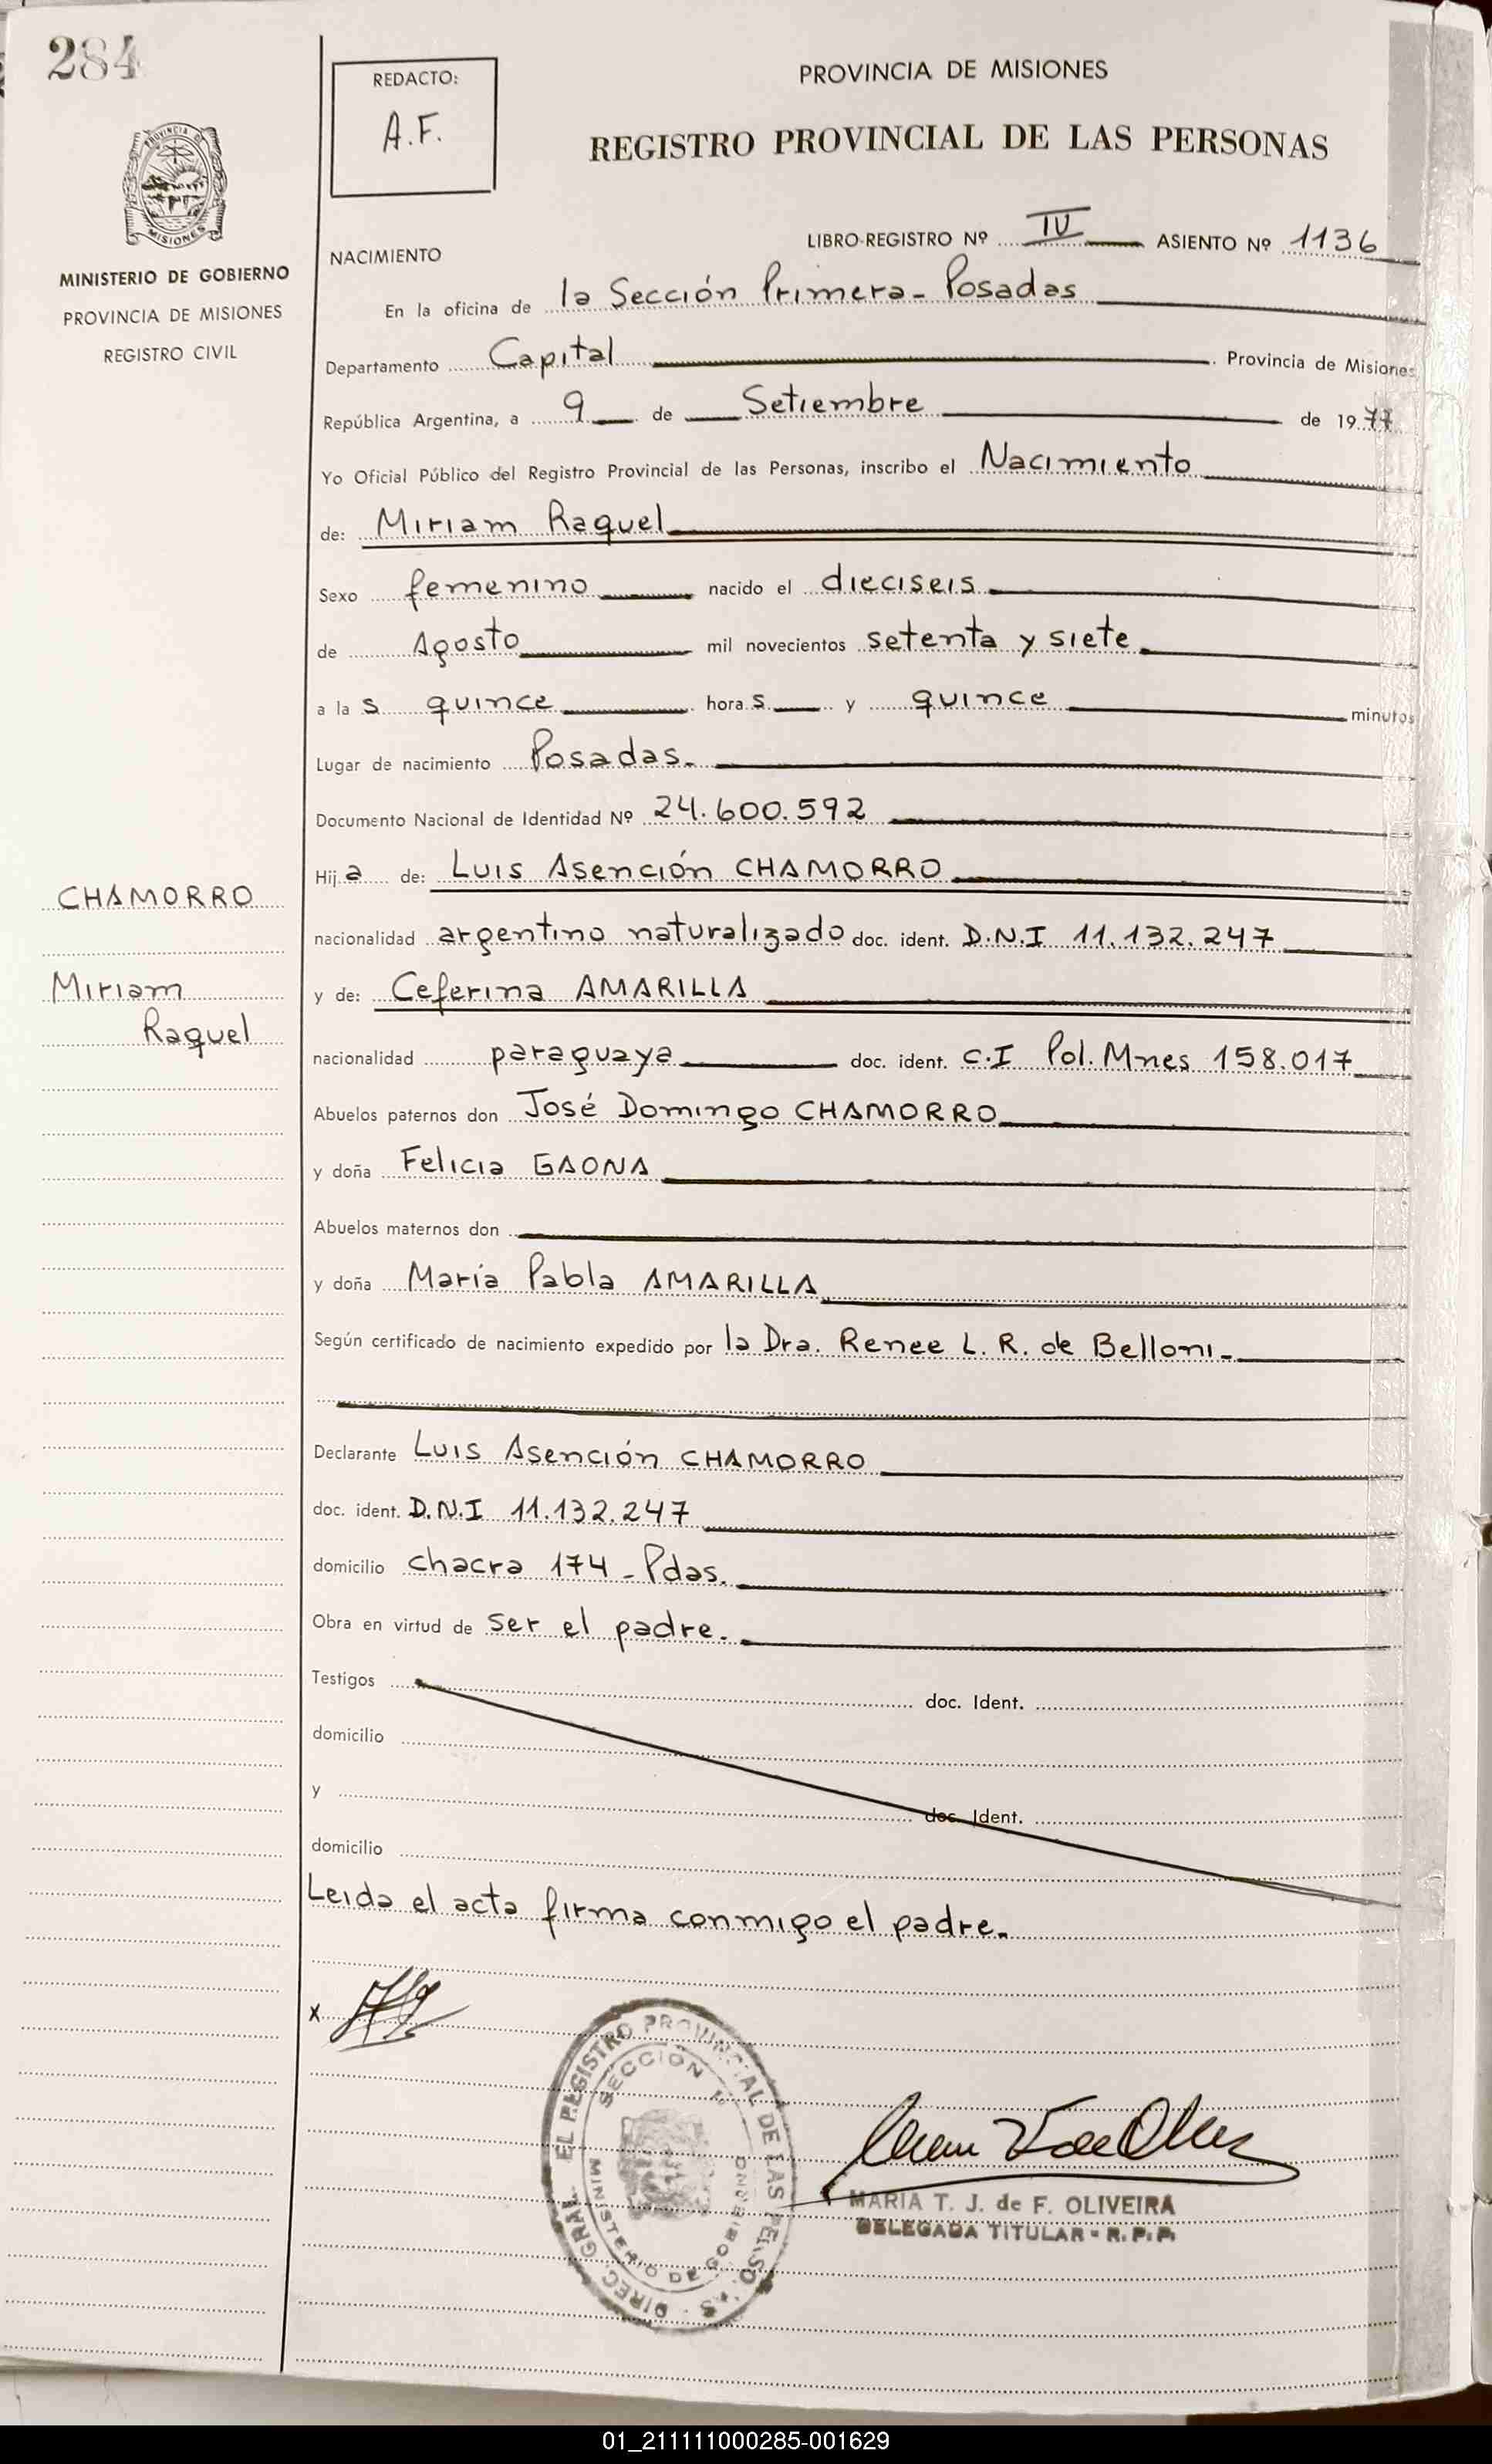 284
REDACTO:
A.F.
PROVINCIA DE MISIONES
REGISTRO PROVINCIAL DE LAS PERSONAS
PROVINCIA DE
MISIONES
MINISTERIO DE GOBIERNO
PROVINCIA DE MISIONES
REGISTRO CIVIL
LIBRO-REGISTRO Nº IV ASIENTO Nº 1136
NACIMIENTO
En la oficina de la Sección Primera - Posadas
Departamento Capital Provincia de Misiones
República Argentina, a 9 de Setiembre de 1977
Yo Oficial Público del Registro Provincial de las Personas, inscribo el Nacimiento
de: Miriam Raquel
Sexo femenino nacido el dieciseis
de Agosto mil novecientos setenta y siete
a la s quince hora s y quince minutos
Lugar de nacimiento Posadas.
Documento Nacional de Identidad Nº 24.600.592
Hij a de: Luis Asención CHAMORRO
CHAMORRO
nacionalidad argentino naturalizado doc. ident. D.N.I 11.132.247
Miriam
y de: Ceferina AMARILLA
Raquel
nacionalidad paraguaya doc. ident. C.I Pol. Mnes 158.017
Abuelos paternos don José Domingo CHAMORRO
y doña Felicia GAONA
Abuelos maternos don
y doña María Pabla AMARILLA
Según certificado de nacimiento expedido por la Dra. Renee L. R. de Belloni -
Declarante Luis Asención CHAMORRO
doc. ident. D.N.I 11.132.247
domicilio chacra 174 - Pdas.
Obra en virtud de ser el padre.
Testigos doc. Ident.
domicilio
y doc. Ident.
domicilio
Leida el acta firma conmigo el padre.
x
DIREC. GRAL. EL REGISTRO PROVINCIAL DE LAS PERSONAS
SECCION
MINISTERIO DE GOBIERNO
MARIA T. J. de F. OLIVEIRA
DELEGADA TITULAR - R. P. P.
01_211111000285-001629